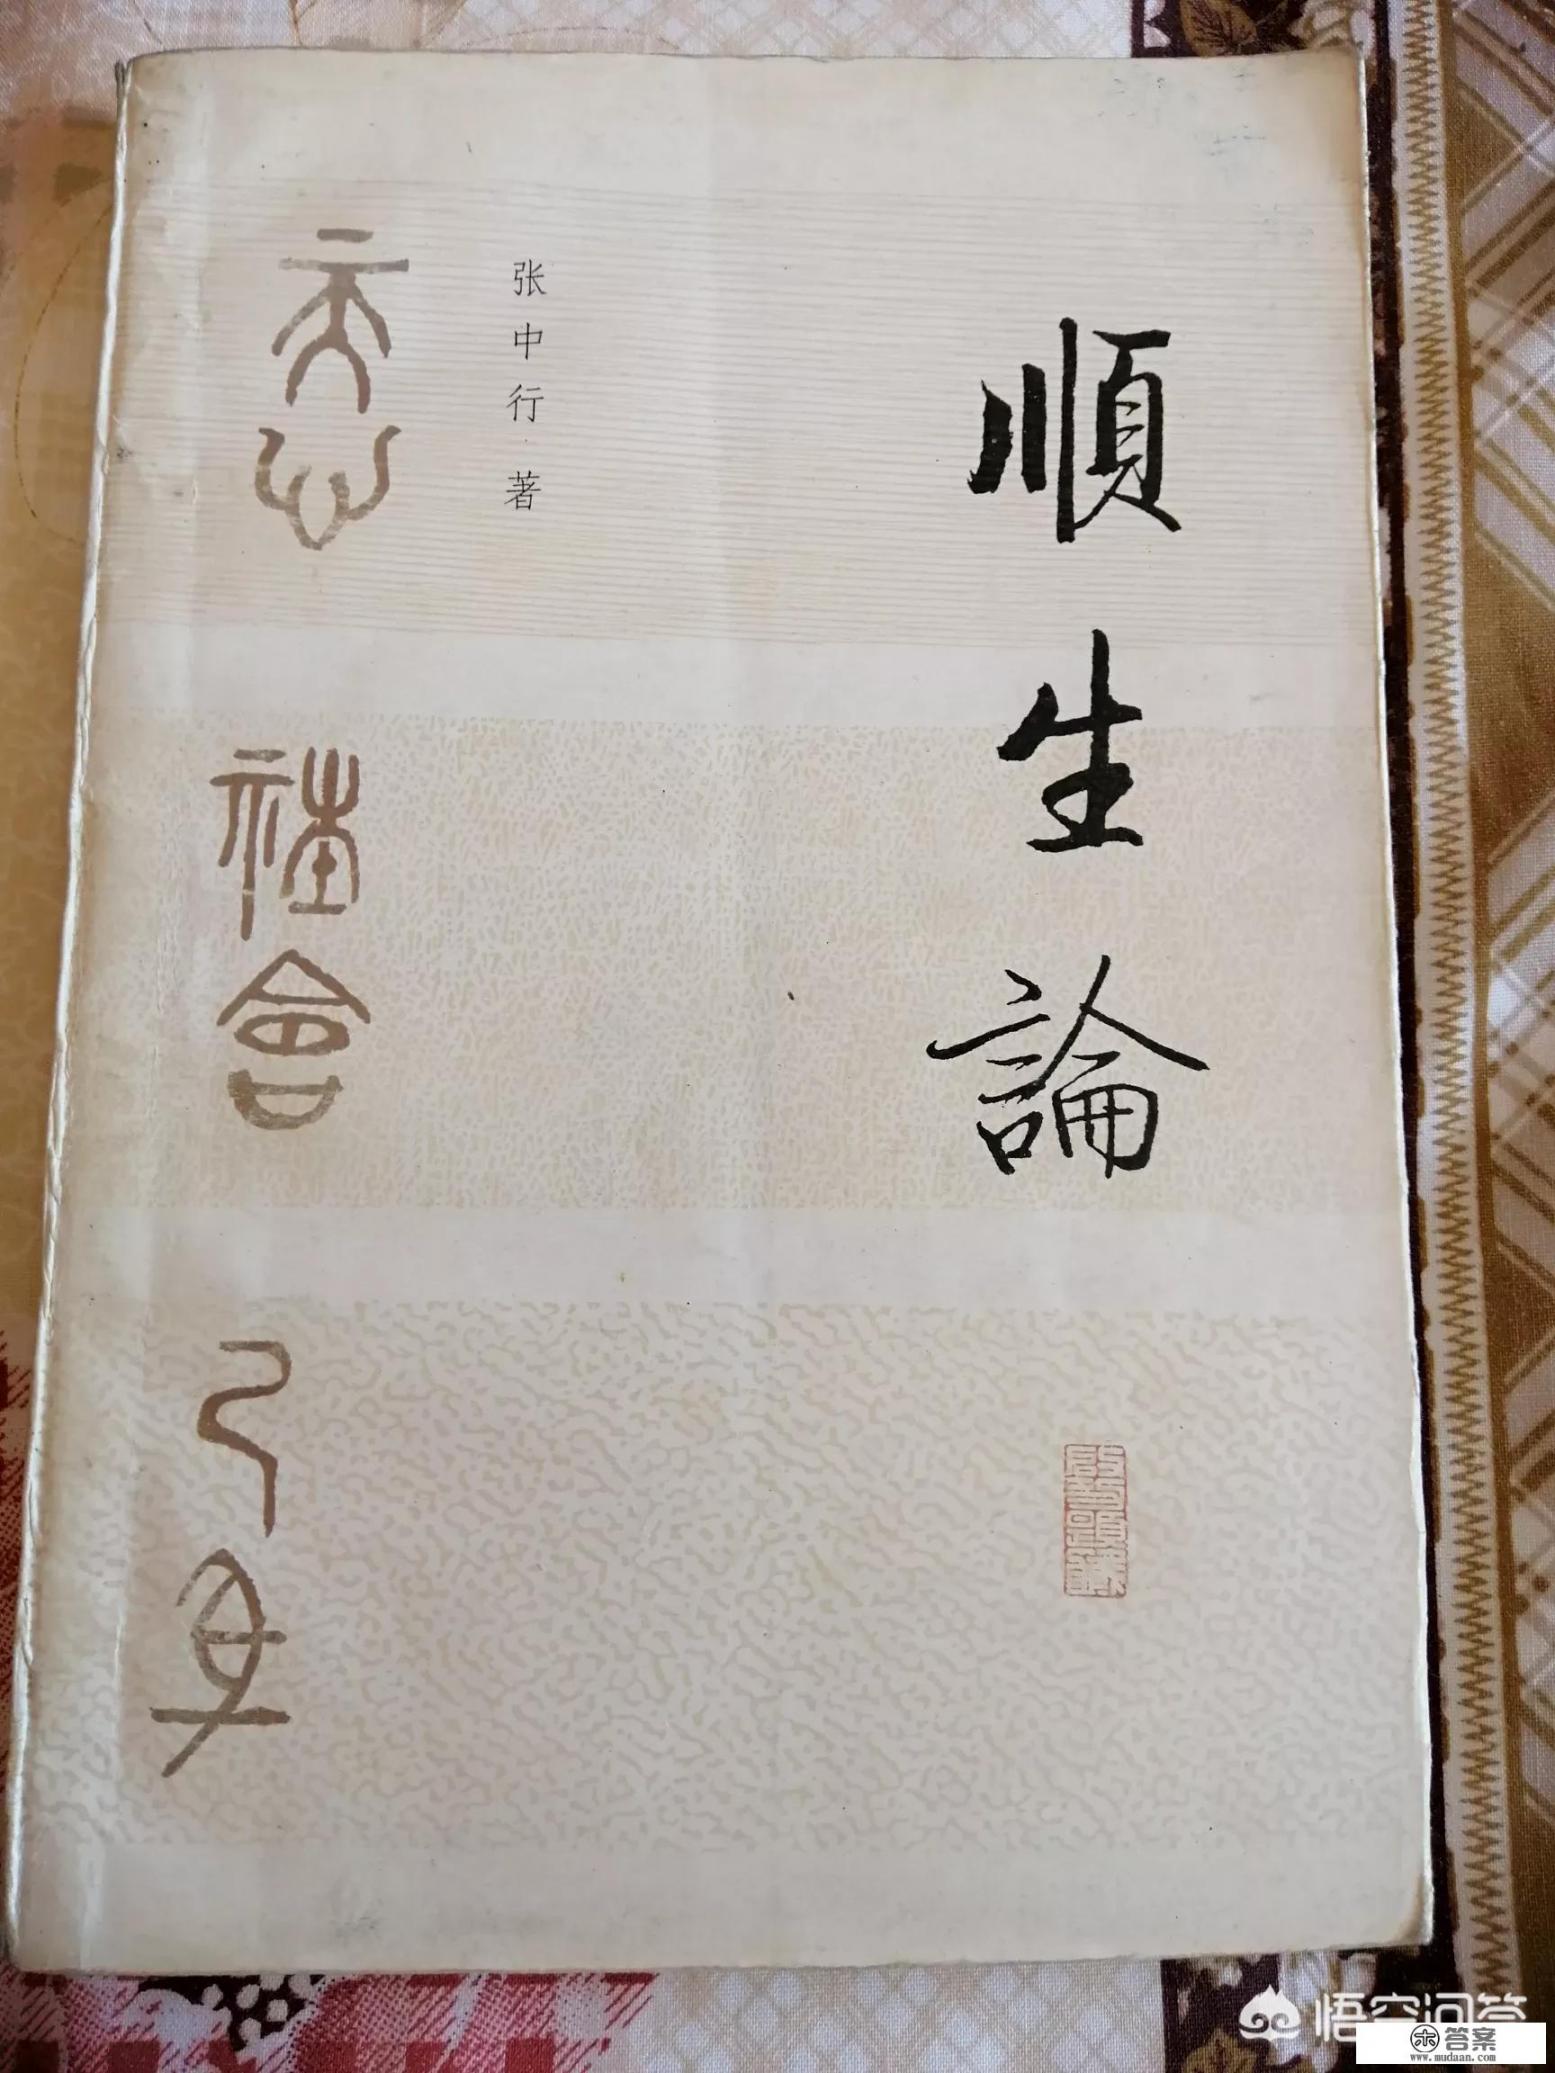 順生論
张中行 著
天心
社會
己身
悟空问答
答案
www.mudaan.com